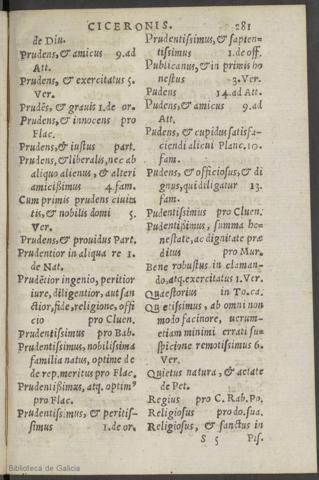 CICERONIS. 281
de Diu.
Prudens, & amicus 9. ad
Att.
Prudens, & exercitatus 5.
Ver.
Prudēs, & grauis 1. de or.
Prudens, & innocens pro
Flac.
Prudens, & iustus part.
Prudens, & liberalis, nec ab
aliquo alienus, & alteri
amicißimus 4. fam.
Cum primis prudens ciuita
tis, & nobilis domi 5.
Ver.
Prudens, & prouidus Part.
Prudentior in aliqua re 1.
de Nat.
Prudētior ingenio, peritior
iure, diligentior, aut san
ctior, fide, religione, offi
cio pro Cluen.
Prudentissimus pro Bab.
Prudentissimus, nobilissima
familia natus, optime de
de rep. meritus pro Flac.
Prudentißimus, atq. optim⁹
pro Flac.
Prudentissimus, & peritis-
simus 1. de or.
Prudentissimus, & sapten-
tissimus 1. de off.
Publicanus, & in primis ho
nestus 3. Ver.
Pudens 14. ad Att.
Pudens, & amicus 9. ad
Att.
Pudens, & cupidus satisfa-
ciendi alicui Planc. 10.
fam.
Pudens, & officiosus, & di
gnus, qui diligatur 13.
fam.
Pudentissimus pro Cluen.
Pudentißimus, summa ho-
nestate, ac dignitate præ
ditus pro Mur.
Bene robustus in claman-
do, atq. exercitatus 1. Ver.
Quæstorius in To. ca.
Quietissimus, ab omni non
modo facinore, uerum-
etiam minimi errati su-
spicione remotissimus 6.
Ver.
Quietus natura, & ætate
de Pet.
Regius pro C. Rab. Po.
Religiosus pro do. sua.
Religiosus, & sanctus in
S 5 Pis.
Biblioteca de Galicia